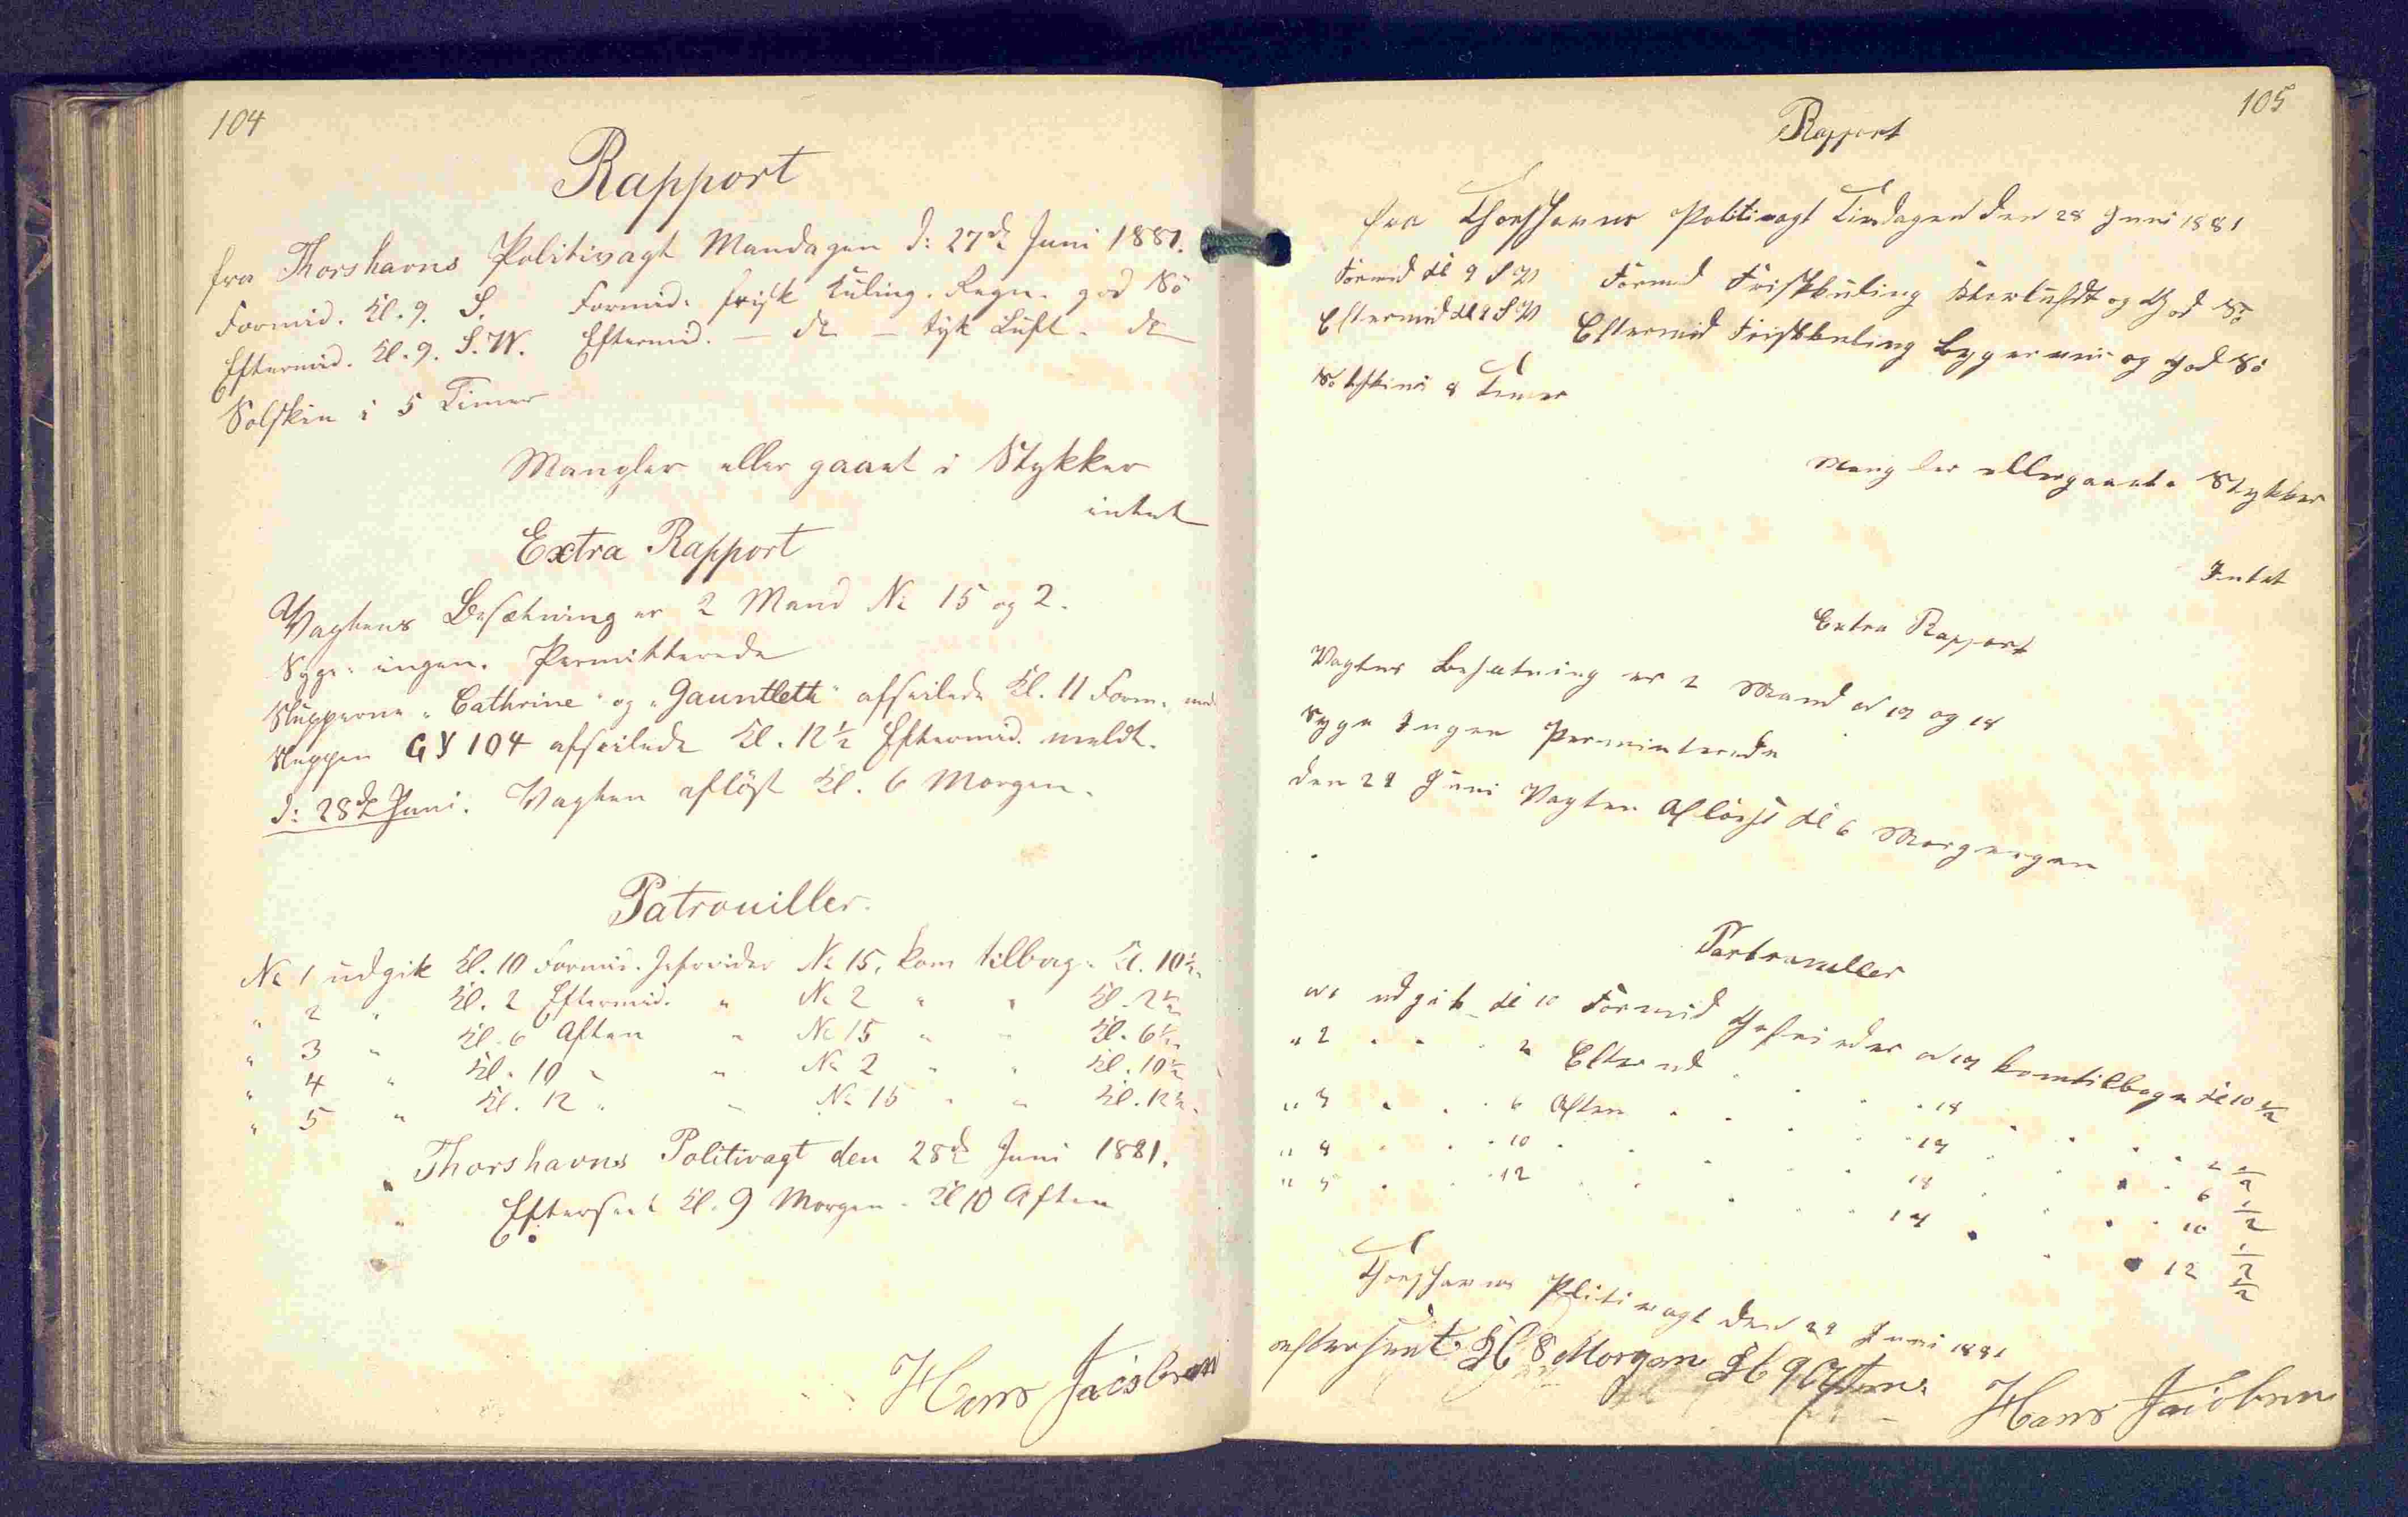 104
Rapport
fra Thorshavns Politivagt Mandagen d: 27de Juni 1881.
Formid. Kl. 9. S. Formid. frisk Kuling. Regn. god Sö
Eftermid. Kl. 9. S.W. Eftermid. — do — tyk Luft. do
Solskin i 5 Timer
Mangler eller gaaet i Stykker
intet
Extra Rapport
Vagtens Besætning er 2 Mand No 15 og 2.
Syge: ingen. Permitterede
Slupperne "Cathrine" og "Gauntlett" afseilede Kl. 11 Form.
Sluppen GY 104 afseilede Kl. 12½ Eftermid. meldt.
d: 28de Juni. Vagten aflöst Kl. 6 Morgen.
Patrouiller.
No 1 udgik Kl. 10 Formid. Gefreider No 15. kom tilbage Kl. 10½
" 2 " Kl. 2 Eftermid. " No 2 " " Kl. 2½
" 3 " Kl. 6 Aften " No 15 " " Kl. 6½
" 4 " Kl. 10 " " No 2 " " Kl. 10½
" 5 " Kl. 12 " " No 15 " " Kl. 12½
Thorshavns Politivagt den 28de Juni 1881.
Efterseet Kl. 9 Morgen. Kl 10 Aften
Hans Jacobsen
105
Rapport
fra Thorshavns Politivagt Tirsdagen den 28 Juni 1881
Formid Kl 9 S W Formid Friskkuling og God Sö
Eftermid Kl 9 S W Eftermid Friskkuling og God Sö
Solskin i 8 Timer
Mangler ellergaaet i Stykker
Intet
Extra Rapport
Vagtens Besatning er 2 Mand No 17 og 18
Syge Ingen Perminterede
den 29 Juni Vagten Aflöst Kl 6 Morgengen
Partrouiller
No 1 udgik Kl 10 Formid Gefreider No 17 komtilbage Kl 10 ½
" 2 " " " 2 Eftermd " " " 18 " " " 2 ½
" 3 " " " 6 Aften " " " 17 " " " 6 ½
" 4 " " " 10 " " " 18 " " " 10 ½
" 5 " " " 12 " " " 17 " " " 12 ½
Thorshavns Plitivagt den 29 Juni 1881
efterseet Kl 8 Morgen Kl 9 Aften.
Hans Jacobsen